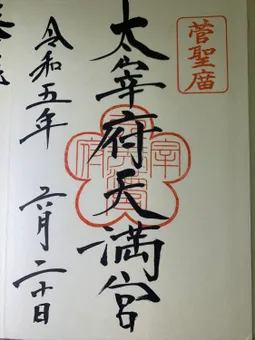 菅聖廟
太宰府天満宮
令和五年 六月二十日